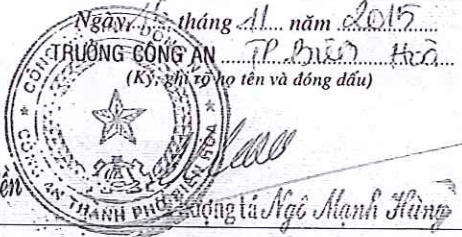 Ngày tháng 11 năm 2015
TRƯỞNG CÔNG AN TP Biên Hoà
(Ký, ghi rõ họ tên và đóng dấu)
CÔNG AN THÀNH PHỐ BIÊN HÒA
Thượng tá Ngô Mạnh Hùng